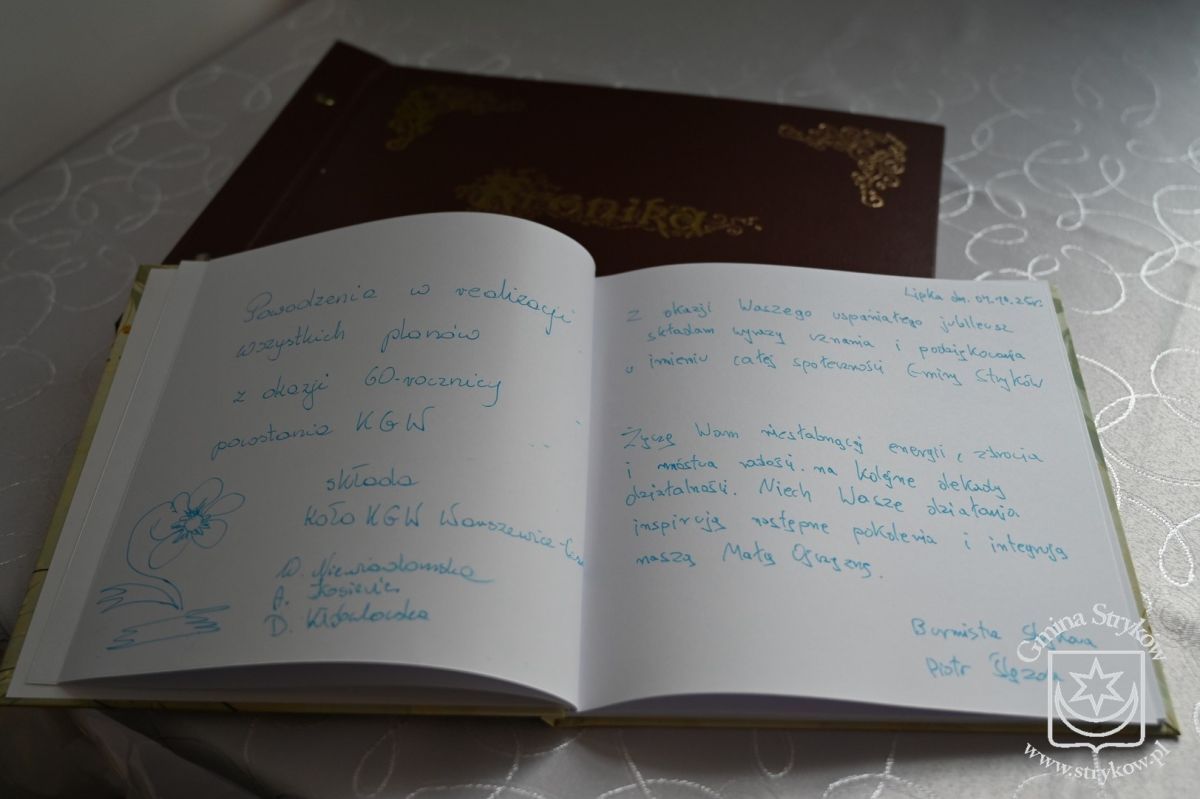 Kronika
Powodzenia w realizacji
wszystkich planów
z okazji 60-rocznicy
powstania KGW
składa
Koło KGW Warszewice-
W. Niewiadomska
A.
D.
Lipka dn. 04.10.25r.
Z okazji Waszego wspaniałego jubileusz
składam wyrazy uznania i podziękowania
w imieniu całej społeczności Gminy Stryków
Życzę Wam niesłabnącej energii, zdrowia
i mnóstwa radości na kolejne dekady
działalności. Niech Wasze działania
inspirują następne pokolenia i integrują
naszą Małą Ojczyznę.
Burmistrz Strykowa
Piotr Ślęzak
Gmina Stryków
www.strykow.pl